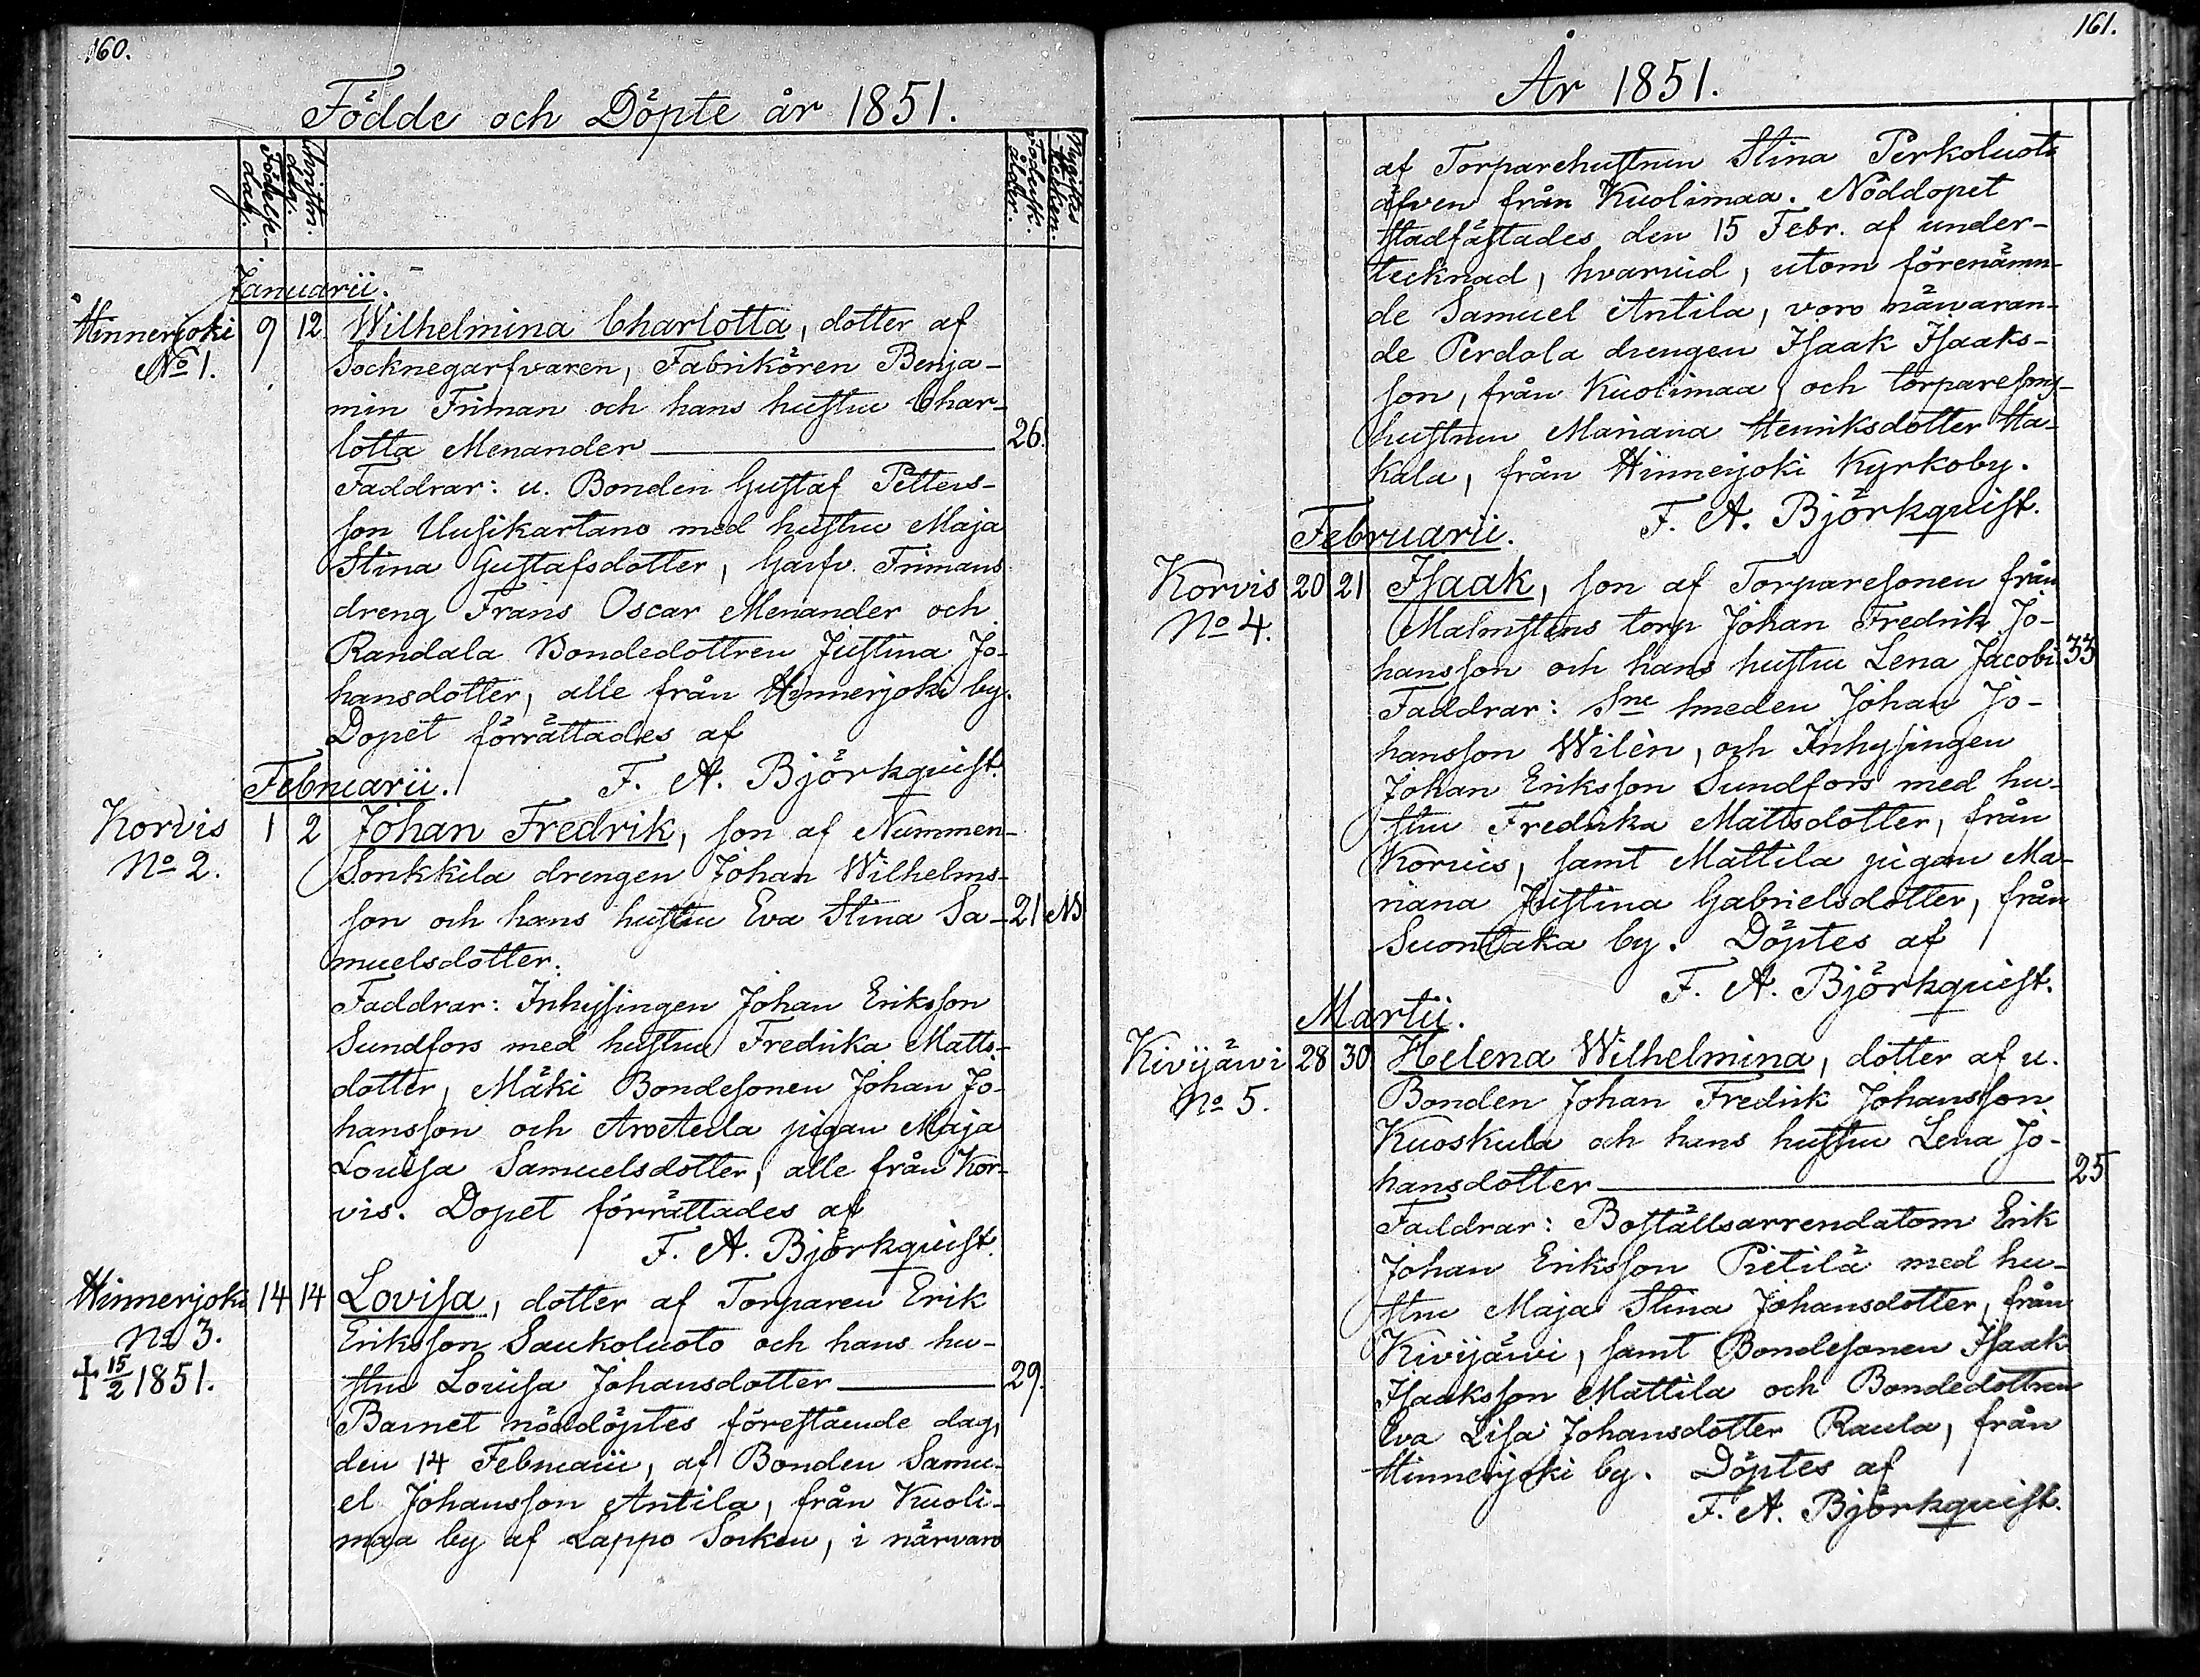 160.
Födde och Döpte år 1851.
Födelse-
dag.
Christn.
dag.
Moders
ålder.
Januarii.
Hinnerjoki 9 12. Wilhelmina Charlotta, dotter af
No 1. Socknegarfvaren, Fabrikören Benja-
min Friman och hans hustru Char-
lotta Menander 26.
Faddrar: u. Bonden Gustaf Petters-
son Uusikartano med hustru Maja
Stina Gustafsdotter, Garfv. Frimans
dreng Frans Oscar Menander och
Randala Bondedottren Justina Jo-
hansdotter, alle från Hinnerjoki by.
Dopet förrättades af
F. A. Björkquist.
Februarii.
Korvis 1 2 Johan Fredrik, son af Nummen-
No 2. Sonkkila drengen Johan Wilhelms-
son och hans hustru Eva Stina Sa- 21
muelsdotter.
Faddrar: Inhysingen Johan Eriksson
Sundfors med hustru Fredrika Matts-
dotter, Mäki Bondesonen Johan Jo-
hansson och pigan Maja
Lovisa Samuelsdotter, alle från Kor-
vis. Dopet förrättades af
F. A. Björkquist.
Hinnerjoki 14 14 Lovisa, dotter af Torparen Erik
No 3. Eriksson Saukoluoto och hans hu-
† 15/2 1851. stru Lovisa Johansdotter 29.
Barnet nöddöptes förestående dag,
den 14 Februarii, af Bonden Samu-
el Johansson Antila, från Kuoli-
maa by af Lappo Socken, i närvaro
161.
År 1851.
af Torparehustrun Stina Perkoluoto
äfven från Kuolimaa. Nöddopet
stadfästades den 15 Febr. af under-
tecknad, hvarvid, utom förenämn-
de Samuel Antila, voro närvaran-
de Perdola drengen Isaak Isaaks-
son, från Kuolimaa, och torparesons-
hustrun Mariana Henriksdotter Ha-
kala, från Hinnerjoki Kyrkoby.
F. A. Björkquist.
Februarii.
Korvis 20 21 Isaak, son af Torparesonen från
No 4. Malmstens torp Johan Fredrik Jo-
hansson och hans hustru Lena Jacobs. 33
Faddrar: Sne smeden Johan Jo-
hansson Wilèn, och Inhysingen
Johan Eriksson Sundfors med hu-
stru Fredrika Mattsdotter, från
Korvis, samt Mattila pigan Ma-
riana Justina Gabrielsdotter, från
Suontaka by. Döptes af
F. A. Björkquist.
Martii.
Kivijäwi 28 30 Helena Wilhelmina, dotter af u.
No 5. Bonden Johan Fredrik Johansson
Kuoskula och hans hustru Lena Jo-
hansdotter 25
Faddrar: Boställsarrendatorn Erik
Johan Eriksson Pietilä med hu-
stru Maja Stina Johansdotter, från
Kivijäwi, samt Bondesonen Isaak
Isaaksson Mattila och Bondedottren
Eva Lisa Johansdotter Raula, från
Hinnerjoki by. Döptes af
F. A. Björkquist.